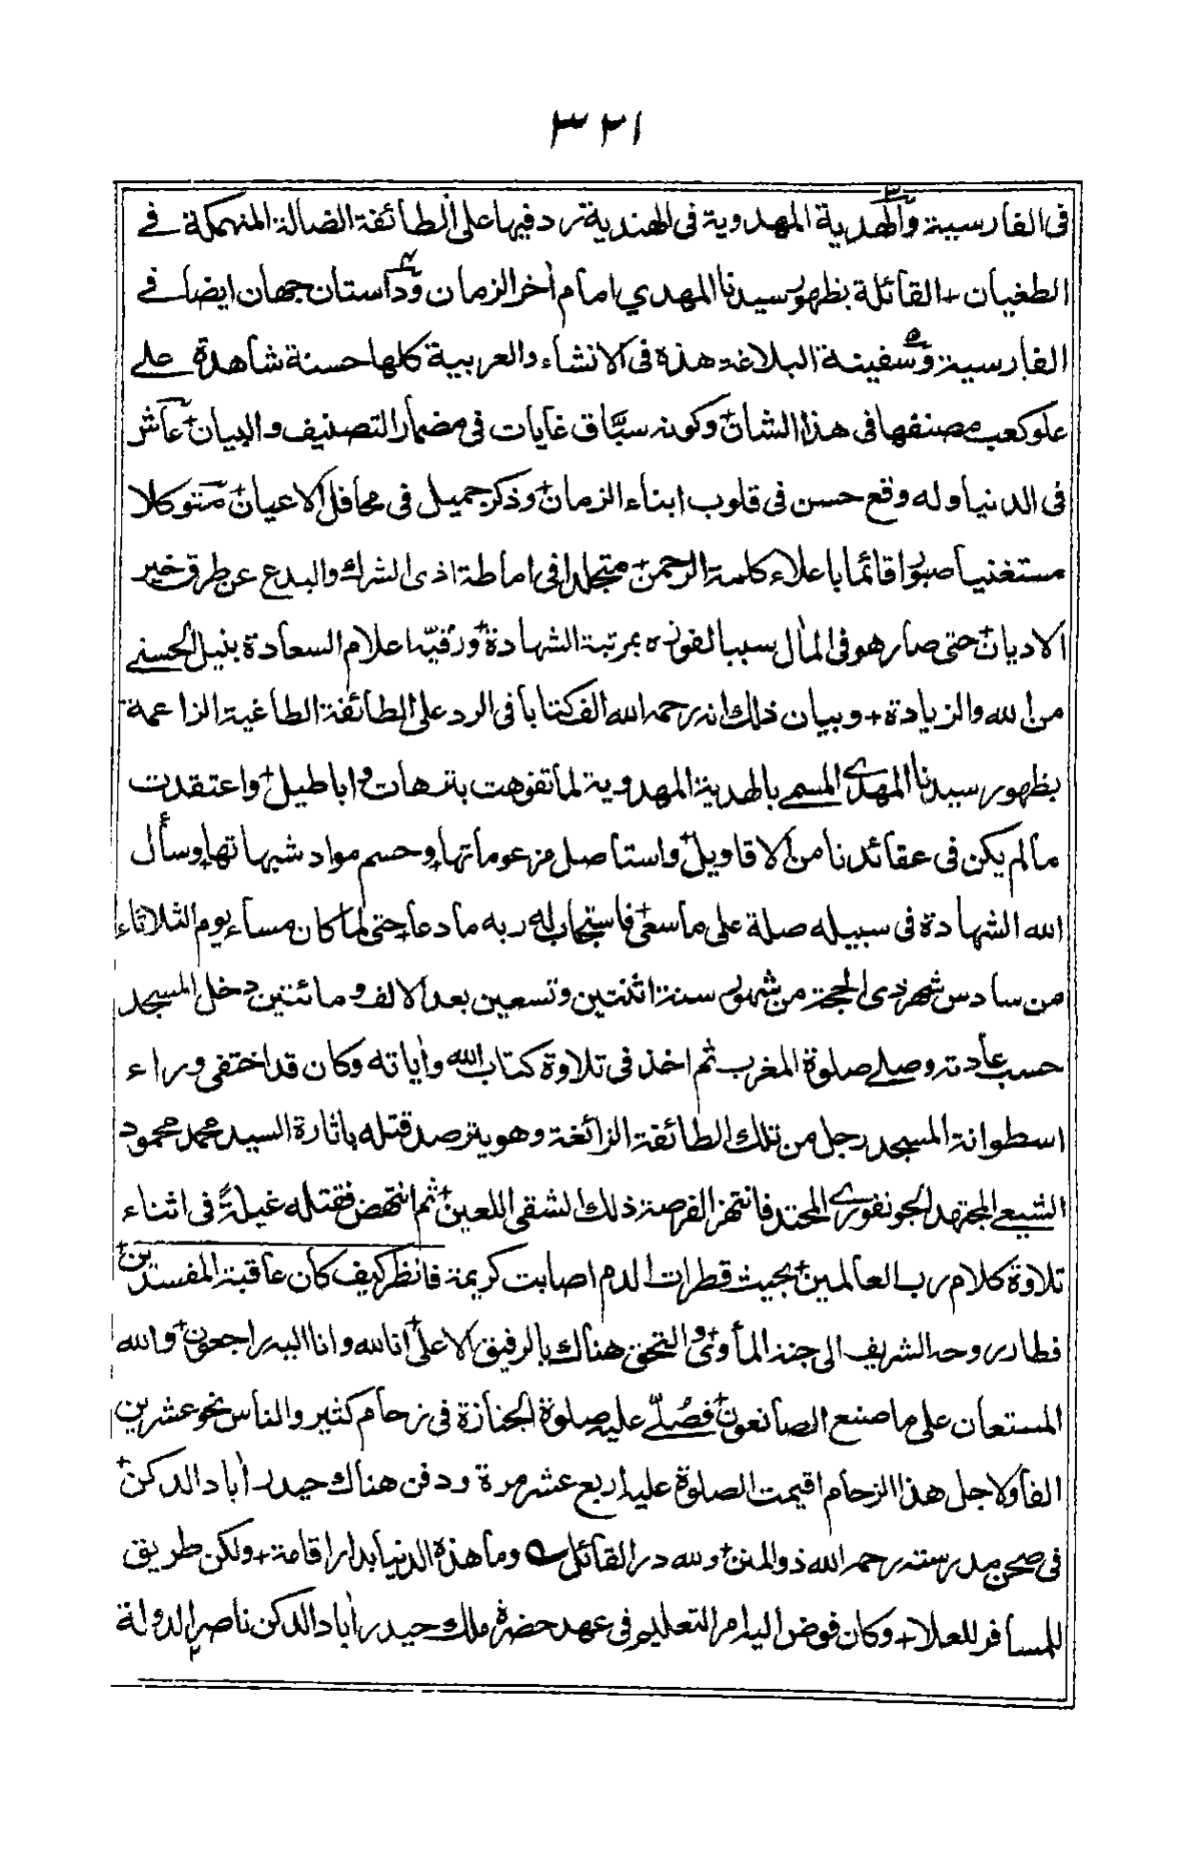 ٣٢١
فى الفارسية والهدية المهدوية فى الهندية ترد فيها على الطائفة الضالة المنهمكة فے
الطغيان + القائلة بظهور سيدنا المهدي امام أخر الزمان و داستان جهان ايضا فے
الفارسية و سفينة البلاغة هذه فى الانشاء والعربية كلها حسنة شاهدة علے
علو كعب مصنفها فى هذا الشان + وكونه سبّاق غايات فى مضمار التصنيف والبيان + عاش
فى الدنيا وله وقع حسن فى قلوب ابناء الزمان + وذكر جميل فى محافل الاعيان + متوكلا
مستغنيا صبوًا قائما باعلاء كلمة الرحمن + متجلدا فى اماطة اذى الشرك والبدع عن طرق خير
الاديان + حتى صار هو فى المال سببا لفوزه بمرتبة الشهادة + ورقيّه اعلام السعادة بنيل الحسنے
من الله والزيادة + وبيان ذلك انه رحمه الله الف كتابا فى الرد على الطائفة الطاغية الزاعمة
بظهور سيدنا المهدى المسمے بالهدية المهدوية لما تفوهت بترهات و اباطيل + واعتقدت
ما لم يكن فى عقائدنا من الاقاويل + واستاصل مزعوماتها + وحسم مواد شبهاتها + وسأل
الله الشهادة فى سبيله صلة على ما سعى + فاستجاب له ربه ما دعا + حتى لما كان مساء يوم الثلاثاء
من سادس شهر ذى الحجة من شهور سنة اثنتين وتسعين بعد الالف ومائتين دخل المسجد
حسب عادته وصلے صلوة المغرب ثم اخذ فى تلاوة كتاب الله وأياته وكان قد اختفى وراء
اسطوانة المسجد رجل من تلك الطائفة الزائغة وهو يترصد قتله باثارة السيد محمد محمود
الشيعے المجتهد الجونفورى المحتد فانتهز الفرصة ذلك الشقى اللعين + ثم انتهض فقتله غيلةً فى اثناء
تلاوة كلام رب العالمين + بحيث قطرات الدم اصابت كريمة فانظر كيف كان عاقبة المفسدين +
فطار روحه الشريف الى جنة المأوى + والتحق هناك بالرفيق الاعلى + انا لله وانا اليه راجعون + والله
المستعان على ما صنع الصانعون + فصُلّے عليه صلوة الجنازة فى زحام كثير والناس نحو عشرين
الفا ولاجل هذا الزحام اقيمت الصلوة عليه اربع عشر مرة ودفن هناك حيدر أباد الدكن +
فى صحن مدرسته رحمه الله ذو المنن + ولله در القائل وما هذه الدنيا بدار اقامة + ولكن طريق
للمسافر للعلا + وكان فوض اليه امر التعليم فى عهد حضرة ملك حيدر أباد الدكن ناصر الدولة